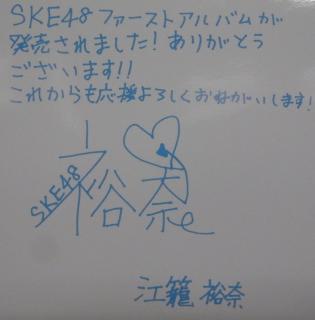 SKE48 ファーストアルバムが
発売されました!ありがとう
ございます!!
これからも応援よろしくおねがいします!
SKE48
裕奈
江籠 裕奈